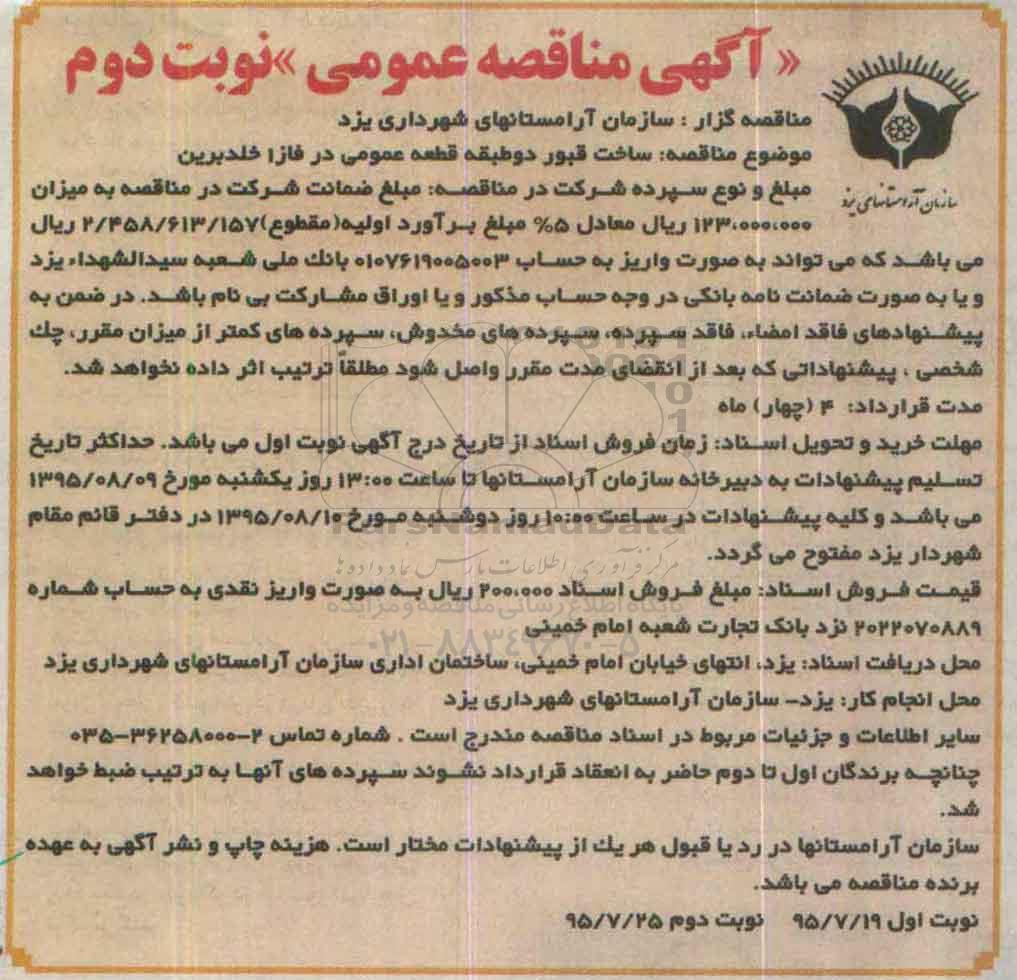 « آگهی مناقصه عمومی »نوبت دوم
مناقصه گزار : سازمان آرامستانهای شهرداری یزد
موضوع مناقصه: ساخت قبور دوطبقه قطعه عمومی در فاز۱ خلدبرین
مبلغ و نوع سپرده شرکت در مناقصه: مبلغ ضمانت شرکت در مناقصه به میزان
سازمان آرامستانهای یزد
۱۲۳،۰۰۰،۰۰۰ ریال معادل ۵% مبلغ برآورد اولیه(مقطوع)۲/۴۵۸/۶۱۳/۱۵۷ ریال
می باشد که می تواند به صورت واریز به حساب ۰۱۰۷۶۱۹۰۰۵۰۰۳ بانک ملی شعبه سیدالشهداء یزد
و یا به صورت ضمانت نامه بانکی در وجه حساب مذکور و یا اوراق مشارکت بی نام باشد. در ضمن به
پیشنهادهای فاقد امضاء، فاقد سپرده، سپرده های مخدوش، سپرده های کمتر از میزان مقرر، چک
شخصی ، پیشنهاداتی که بعد از انقضای مدت مقرر واصل شود مطلقاً ترتیب اثر داده نخواهد شد.
مدت قرارداد: ۴ (چهار) ماه
مهلت خرید و تحویل اسناد: زمان فروش اسناد از تاریخ درج آگهی نوبت اول می باشد. حداکثر تاریخ
تسلیم پیشنهادات به دبیرخانه سازمان آرامستانها تا ساعت ۱۳:۰۰ روز یکشنبه مورخ ۱۳۹۵/۰۸/۰۹
می باشد و کلیه پیشنهادات در ساعت ۱۰:۰۰ روز دوشنبه مورخ ۱۳۹۵/۰۸/۱۰ در دفتر قائم مقام
ParsNamadData
شهردار یزد مفتوح می گردد.
مرکز فرآوری اطلاعات پارس نماد داده ها
قیمت فروش اسناد: مبلغ فروش اسناد ۲۰۰،۰۰۰ ریال به صورت واریز نقدی به حساب شماره
پایگاه اطلاع رسانی مناقصه و مزایده
۲۰۲۲۰۷۰۸۸۹ نزد بانک تجارت شعبه امام خمینی
۰۲۱-۸۸۳۴۹۶۷۰-۵
محل دریافت اسناد: یزد، انتهای خیابان امام خمینی، ساختمان اداری سازمان آرامستانهای شهرداری یزد
محل انجام کار: یزد- سازمان آرامستانهای شهرداری یزد
سایر اطلاعات و جزئیات مربوط در اسناد مناقصه مندرج است . شماره تماس ۲-۳۶۲۵۸۰۰۰-۰۳۵
چنانچه برندگان اول تا دوم حاضر به انعقاد قرارداد نشوند سپرده های آنها به ترتیب ضبط خواهد
شد.
سازمان آرامستانها در رد یا قبول هر یک از پیشنهادات مختار است. هزینه چاپ و نشر آگهی به عهده
برنده مناقصه می باشد.
نوبت اول ۹۵/۷/۱۹ نوبت دوم ۹۵/۷/۲۵